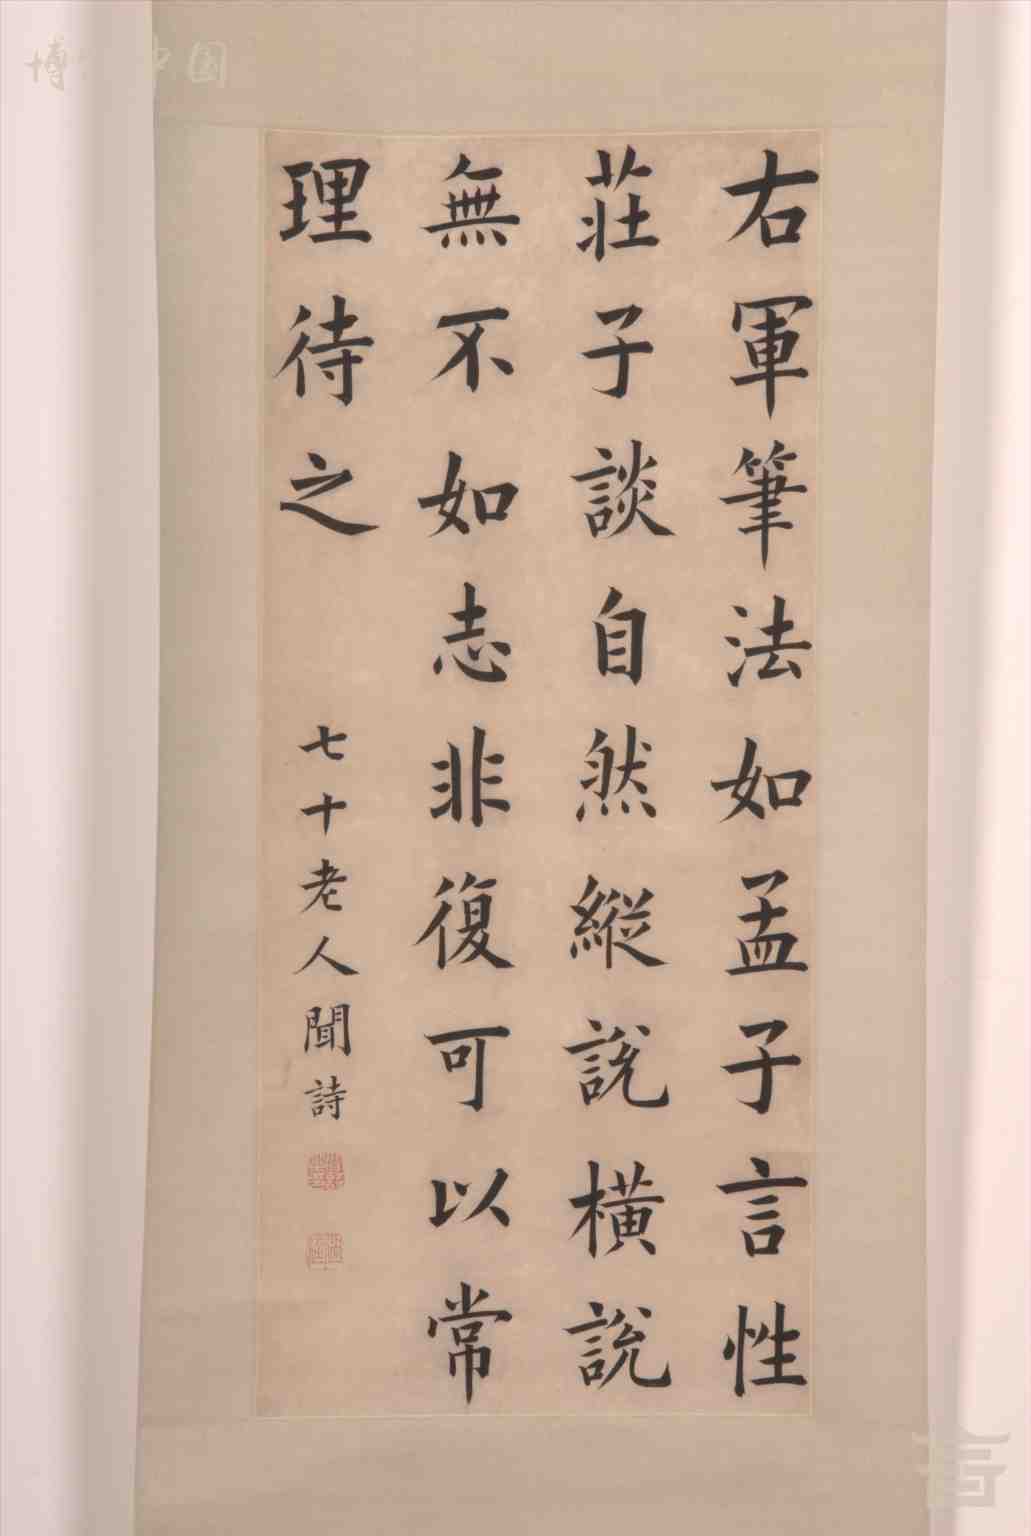 右軍筆法如孟子言性
莊子談自然縱說橫說
無不如志非復可以常
理待之
七十老人聞詩